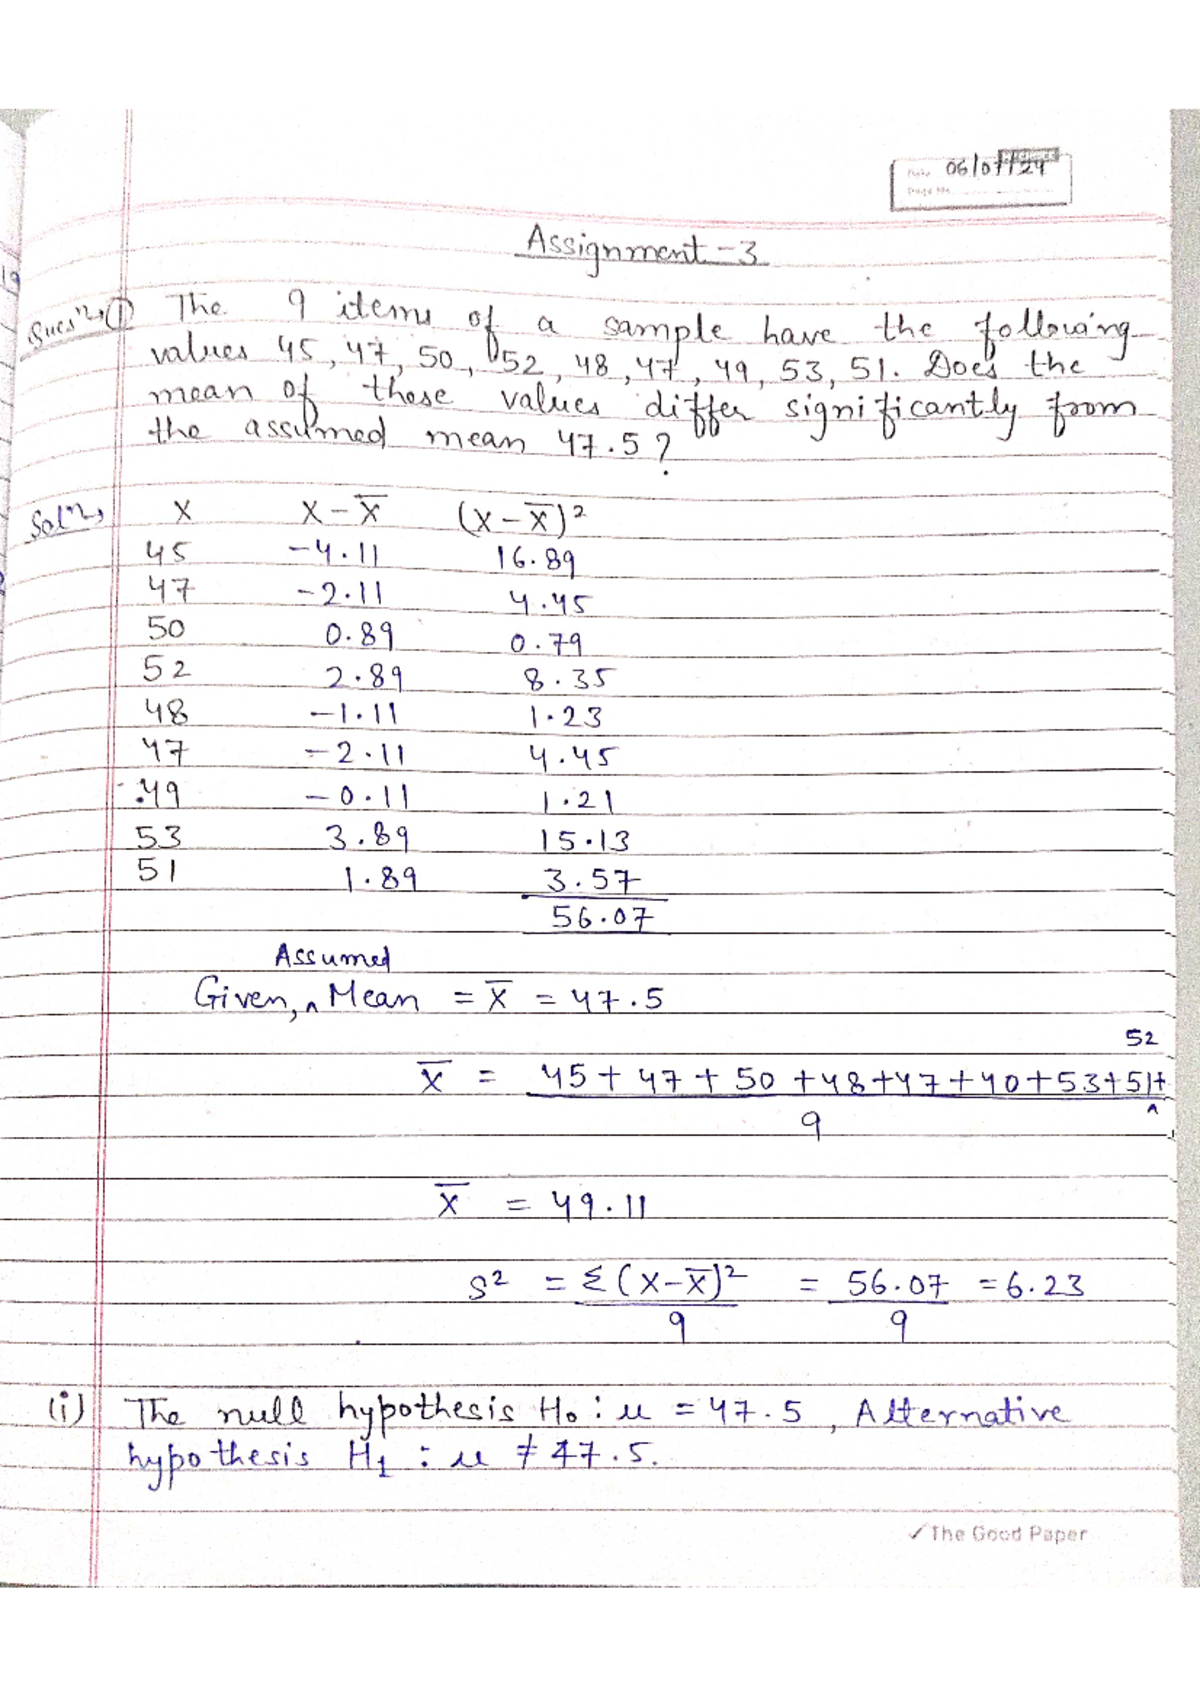 Date 06/07/24
Page No.
Assignment-3
Ques^n→① The 9 items of a sample have the following
values 45, 47, 50, 52, 48, 47, 49, 53, 51. Does the
mean of these values differ significantly from
the assumed mean 47.5?
Sol^n→ X X-X̅ (X-X̅)²
45 -4.11 16.89
47 -2.11 4.45
50 0.89 0.79
52 2.89 8.35
48 -1.11 1.23
47 -2.11 4.45
49 -0.11 1.21
53 3.89 15.13
51 1.89 3.57
56.07
Assumed
Given, ^ Mean = X̅ = 47.5
52
X̅ = 45+47+50+48+47+40+53+51+
^
9
X̅ = 49.11
S² = Σ(X-X̅)² = 56.07 = 6.23
9 9
(i) The null hypothesis H₀ : μ = 47.5, Alternative
hypothesis H₁ : μ ≠ 47.5.
✓The Good Paper